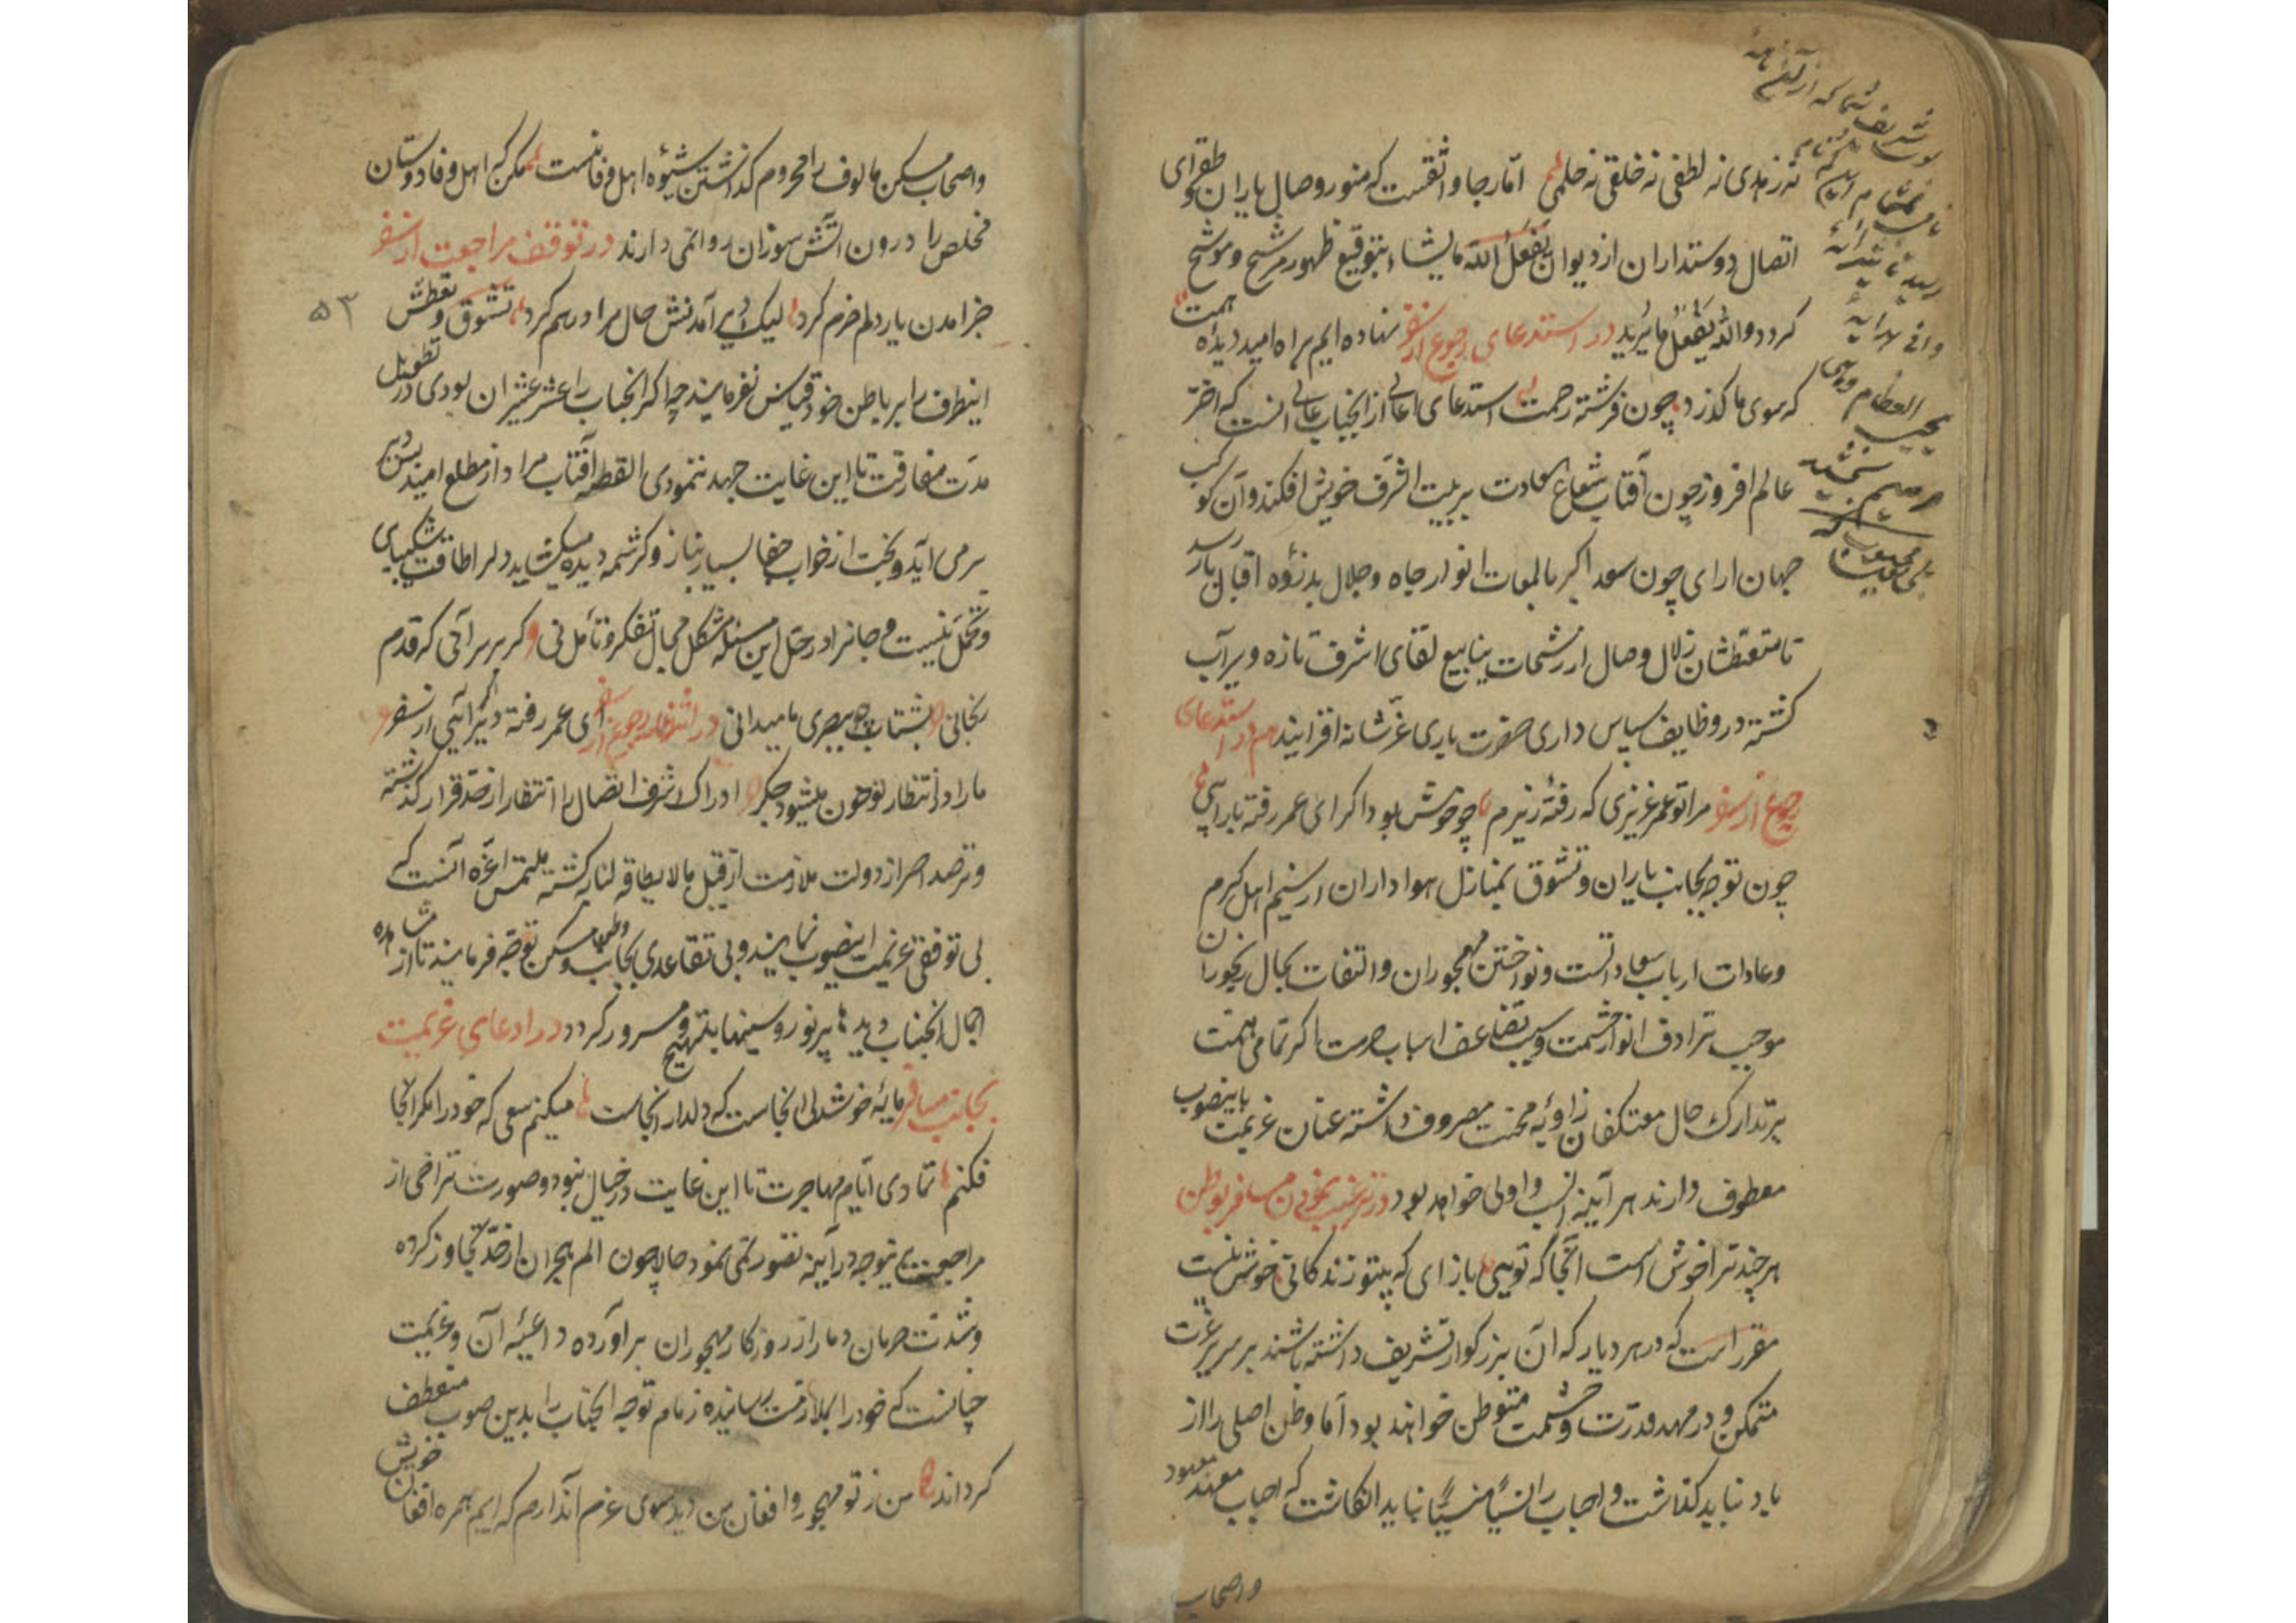 نه رمدی نه لطفی نه خلقی نه حلمی اما رجا واثقست که منشور وصال یاران و طغرای
اتصال دوستداران از دیوان یفعل الله مایشاء بتوقیع ظهور مرشح و موشح
کردد والله یفعل مایرید در استدعای رجوع از سفر نهاده ایم براه امید دیده همت
که سوی ما کذرد چون فرشته رحمت استدعای اعالی از انجناب عالی انست که اختر
عالم افروز چون آفتاب شعاع سعادت بر بیت الشرف خویش افکند و آن کوکب
جهان ارای چون سعد اکبر بالمعات انوار جاه وجلال بدزؤه اقبال باز رسد
تا متعطشان زلال وصال از رشحات ینابیع لقای اشرف تازه و سیراب
کشته در وظایف سپاس داری حضرت باری عز شانه افزایند هم در استدعای
رجوع از سفر مرا تو عمر عزیزی که رفتهٔ ز برم چو خوش بود اکر ای عمر رفته باز آیی
چون توجه بجانب یاران و تشوق بمنازل هواداران از شیم اهل کرم
وعادات ارباب سعاداتست و نواختن مهجوران والتفات بحال رنجوران
موجب ترادف انوار حشمت و سبب تضاعف اسباب حرمت اکر تمامی همت
بر تدارک حال معتکفان زاویه محنت مصروف داشته عنان عزیمت باینصوب
معطوف دارند هر آینه انسب و اولی خواهد بود در ترغیب نمودن مسافر بوطن
هر چند ترا خوش است آنجا که تویی باز ای که بیتو زندکانی خوش نیست
مقرر است که در هر دیار که آن بزرکوار تشریف داشته باشند بر سریر عزت
متمکن و در مهد قدرت و حشمت متوطن خواهند بود اما وطن اصلی را از
یاد نباید کذاشت و احباب را نسیا منسیا نباید انکاشت که احباب معهد معهود
واصحاب
واصحاب مسکن مالوف را محروم کذاشتن شیوهٔ اهل وفا نیست ممکن که اهل وفا دوستان
مخلص را درون آتش سوزان روا نمی دارند در توقف مراجعت از سفر
خبر امدن یار دلم خرم کرد لیک دیر آمدنش حال مرا درهم کرد تشوق و تعطش
۵۳
اینطرف را بر باطن خود قیاس نفرمایند چه اکر انجناب را عشر عشیر ان بودی در تطویل
مدت مفارقت تا این غایت جهد ننمودی القصه آفتاب مراد از مطلع امید دیر
بر می آید و بخت از خواب جفا بسیار بناز و کرشمه دیده میکشاید دلرا طاقت شکیبایی
و تحمل نیست و جانرا در حل این مسئله مشکل مجال تفکر و تأمل نی کر بر سر آنی که قدم
رنجانی بشتاب چو بیصبری ما میدانی در انتظار رجوع از سفر ای عمر رفته دیر آیی از سفر
ما را در انتظار تو خون میشود جکر ادراک شرف اتصال را انتظار از حد قرار کذشته
وترصد احراز دولت ملازمت از قبیل مالا یطاقه لنا به کشته ملتمس اعزه آنست که
بی توقفی عزیمت اینصوب نمایند و بی تقاعدی بجانب وطن و مسکن توجه فرمایند تا از مشاهده
جمال انجناب دیدها پرنور وسینها مبتهج و مسرور کردد در ادعای عزیمت
بجانب مسافر مایهٔ خوشدلی انجاست که دلدار انجاست میکنم سعی که خود را مکر انجا
فکنم تمادی ایام مهاجرت تا این غایت در خیال نبود وصورت تراخی از
مراجعت بتوجه در آیینه تصور نمی نمود حالا چون الم هجران از حد تجاوز کرده
وشدت حرمان دمار از روزکار مهجوران براورده داعیهٔ آن وعزیمت
چنانست که خود را بملازمت رسانیده زمام توجه انجناب را بدین صوب منعطف
کرداند من ز تو مهجور و افغان من دید سوی عزم آن دارم که ایم همره افغان خویش